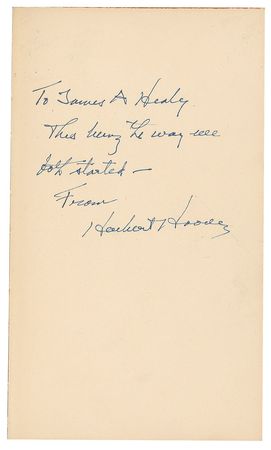 To James A Healy
This being the way we
both started –
From
Herbert Hoover